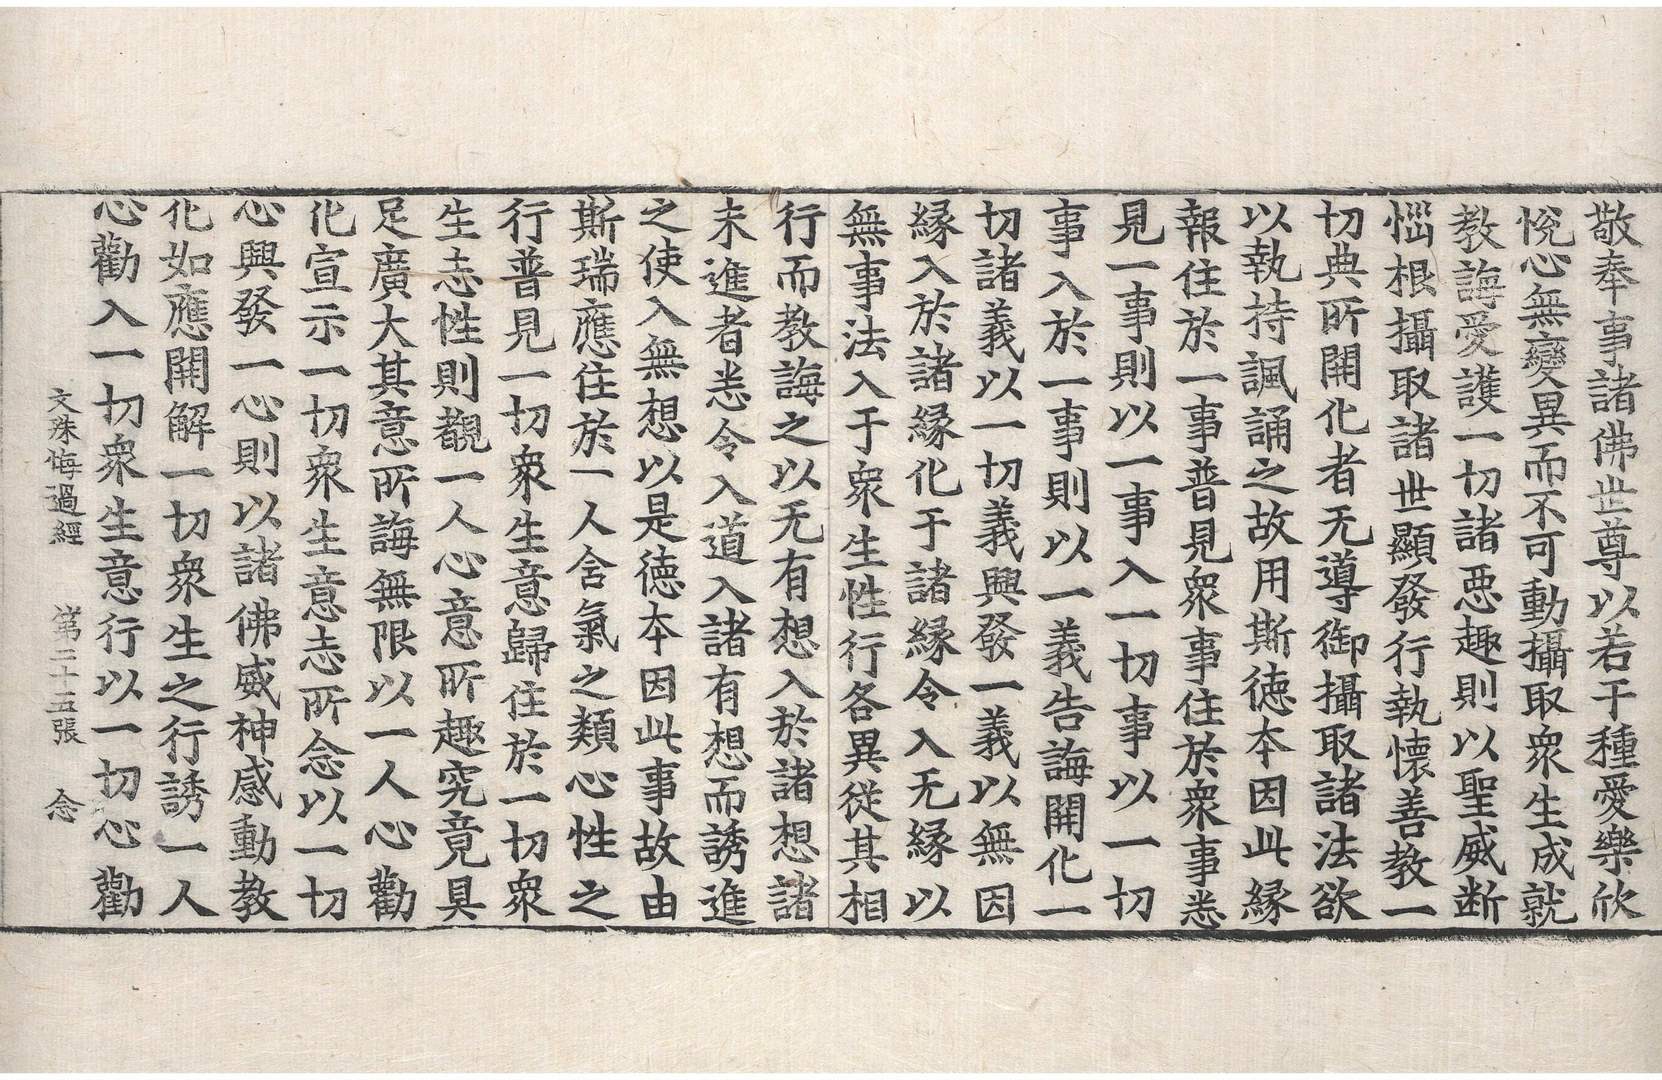 敬奉事諸佛世尊以若干種愛樂欣
恱心無變異而不可動攝取衆生成就
教誨愛護一切諸惡趣則以聖威断
惱根攝取諸世顯發行執懷善教一
切典所開化者无導御攝取諸法欲
以執持諷誦之故用斯徳本因此縁
報住於一事普見衆事住於衆事悉
見一事則以一事入一切事以一切
事入於一事則以一義告誨開化一
切諸義以一切義興發一義以無因
縁入於諸縁化于諸縁令入无縁以
無事法入于衆生性行各異從其相
行而教誨之以无有想入於諸想諸
未進者悉令入道入諸有想而誘進
之使入無想以是徳本因此事故由
斯瑞應住於一人含氣之類心性之
行普見一切衆生意歸住於一切衆
生志性則觀一人心意所趣究竟具
足廣大其意所誨無限以一人心勸
化宣示一切衆生意志所念以一切
心興發一心則以諸佛威神感動教
化如應開解一切衆生之行誘一人
心勸入一切衆生意行以一切心勸
文殊悔過經 第二十五張 念